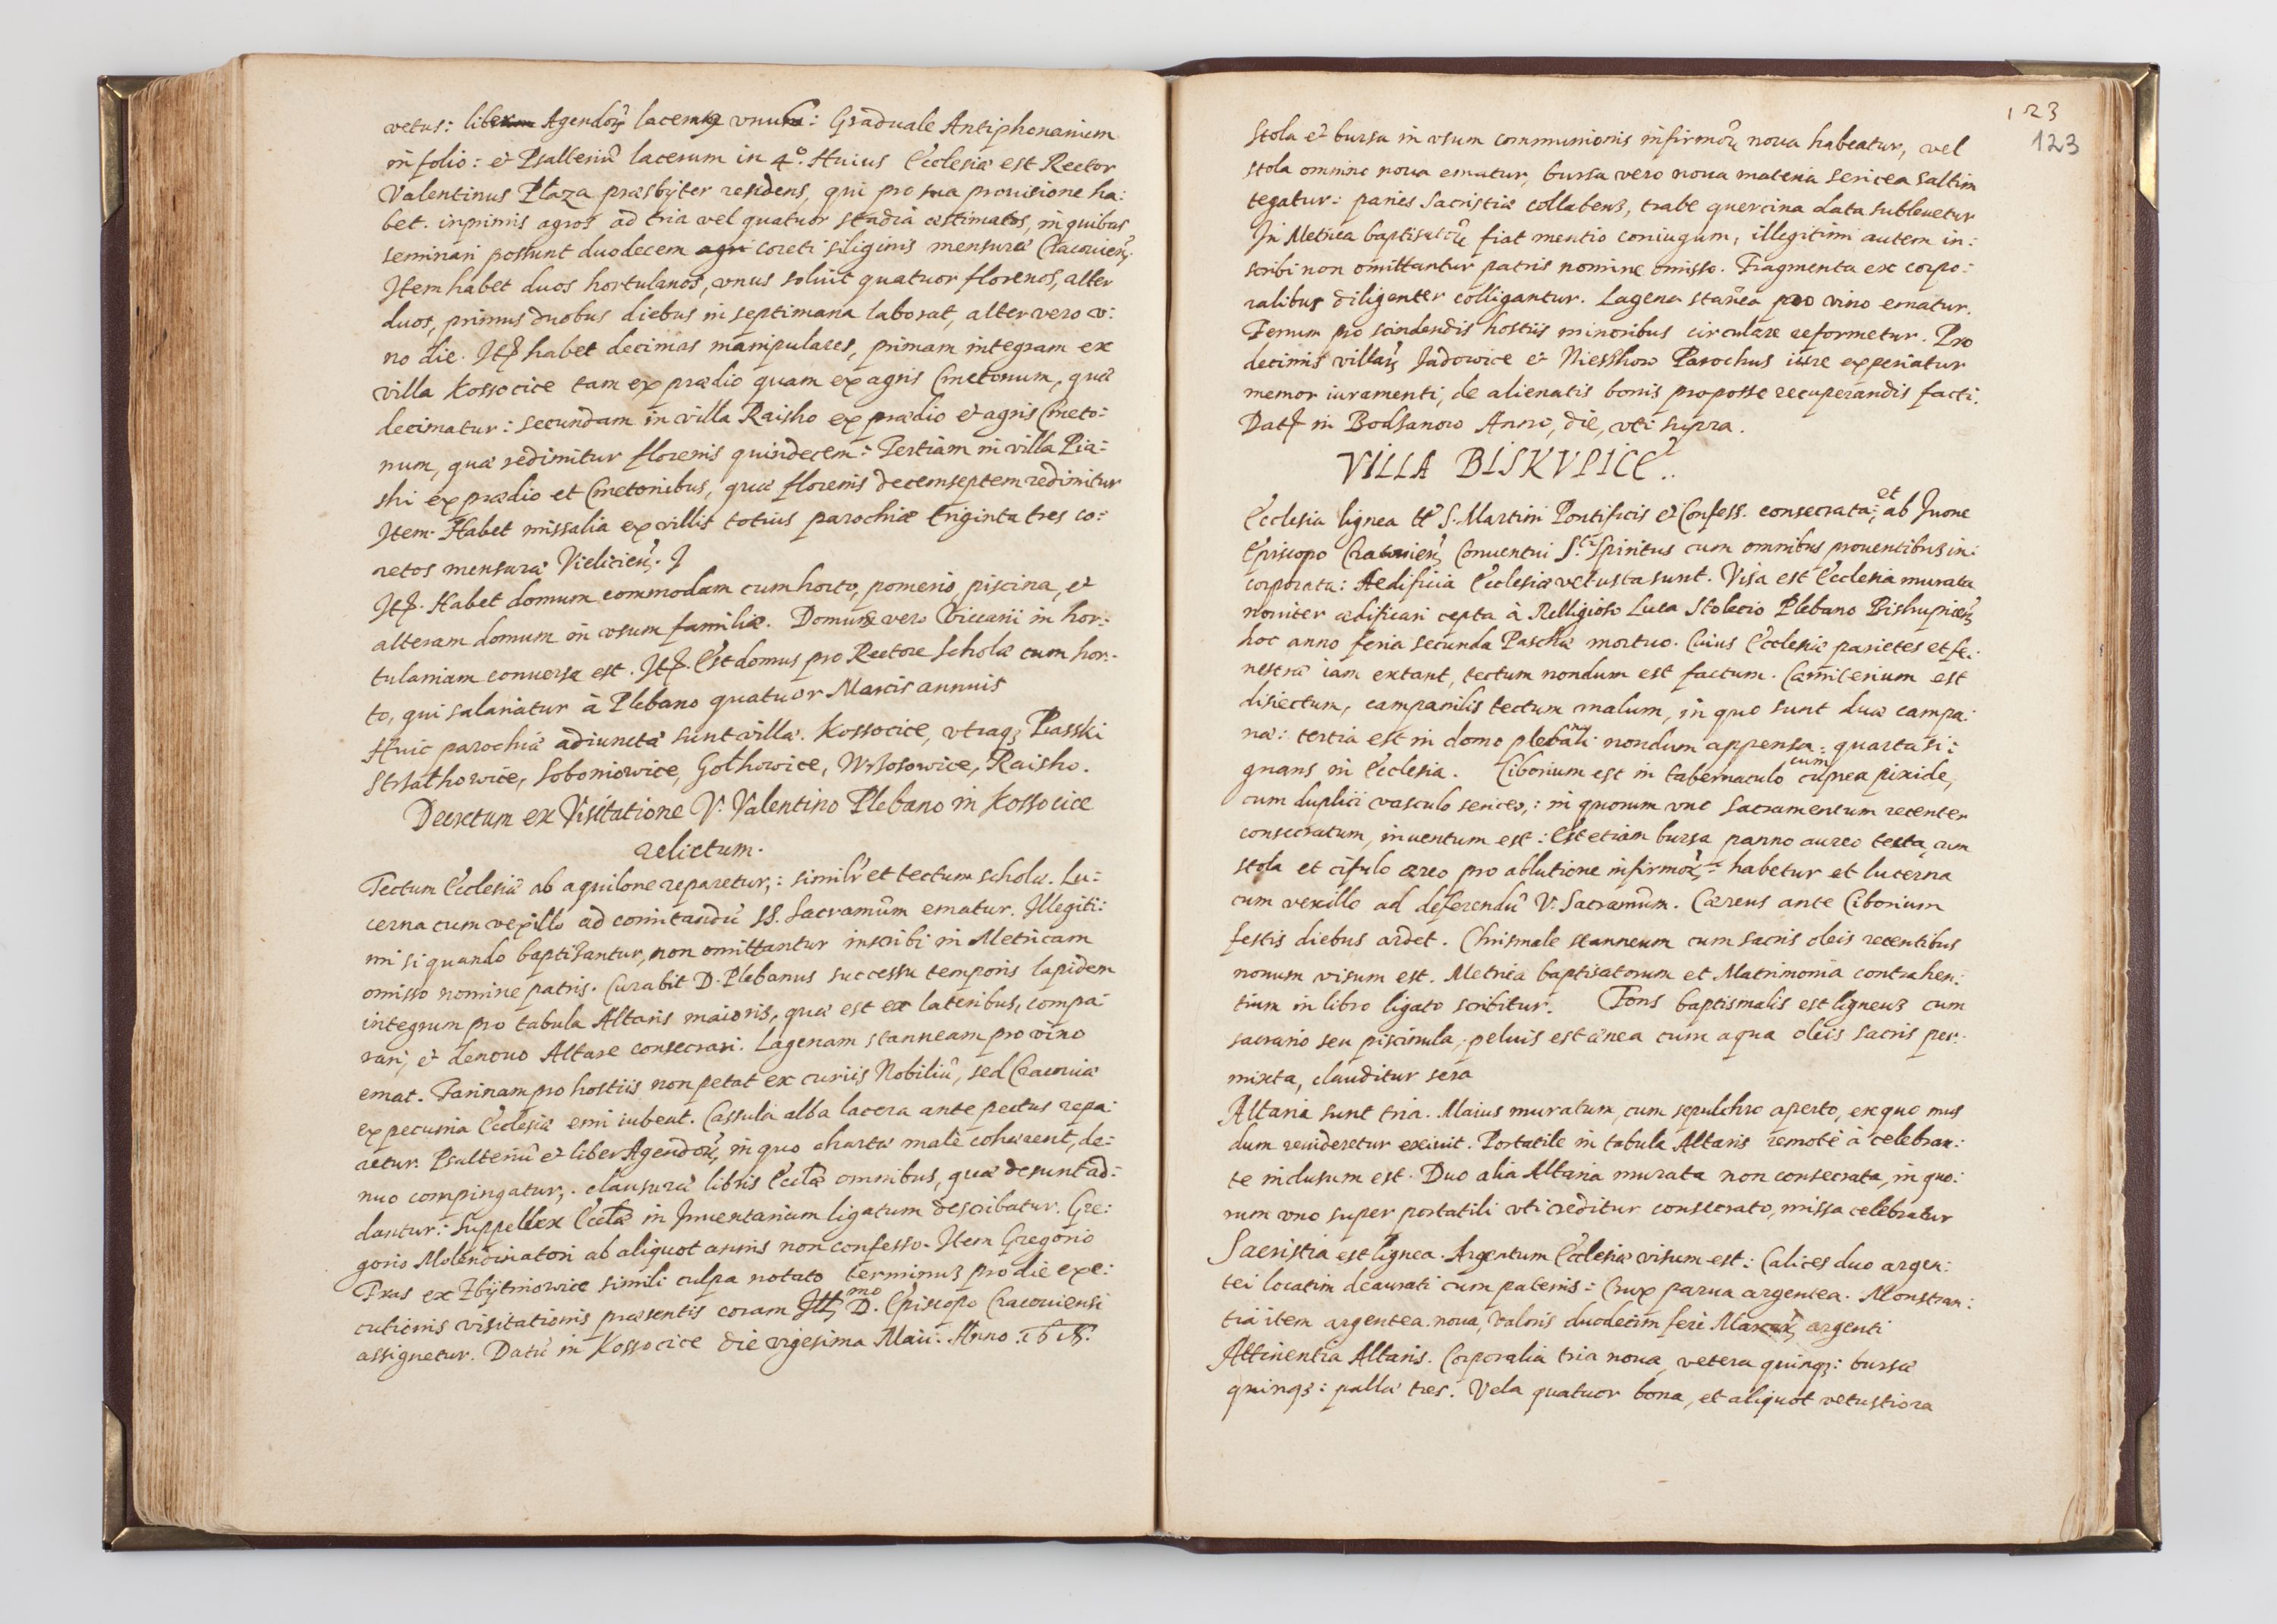 vetus: liber Agendoꝝ lacerus unus: Graduale Antiphonarium
in folio: et Psalteriũ lacerum in 4º. Huius Ecclesiæ est Rector
Valentinus Plaza præsbyter residens, qui pro sua prouisione ha:
bet. inprimis agros ad tria vel quatuor stadia æstimatos, in quibus
seminari possunt duodecem coreti siliginis mensuræ Cracouien̾.
Item habet duos hortulanos, vnus soluit quatuor florenos, alter
duos, primus duobus diebus in septimana laborat, alter vero v:
no die. Itẽ habet decimas manipulares, primam integram ex
villa Kossocice tam ex prædio quam ex agris Cmetonum, quæ
decimatur: secundam in villa Raisko ex prædio et agris Cmeto:
num, quæ redimitur florenis quindecem: Tertiam in villa Pia:
ski ex prædio et Cmetonibus, quæ florenis decemseptem redimitur
Item. Habet missalia ex villis totius parochiæ triginta tres co:
retos mensuræ Vielicien̾.
Itẽ. Habet domum commodam cum horto, pomerio, piscina, et
alteram domum in vsum familiæ. Domus vero Viccarii in hor:
tulaniam conuersa est. Itẽ. Est domus pro Rectore scholæ cum hor:
to, qui salariatur à Plebano quatuor Marcis annuis
Huic parochiæ adiunctæ sunt villæ. Kossocice, vtraqȝ Piasski
Strzalkowice, Soboniowice, Golkowice, Wrzosowice, Raisko.
Decretum ex Visitatione V. Valentino Plebano in Kossocice
relictum.
Tectum Ecclesiæ ab aquilone reparetur,: similr̃ et tectum scholæ. Lu:
cerna cum vexillo ad comitandũ SS. Sacramm̃ ematur. Illegiti:
mi si quando baptisantur, non omittantur inscribi in Metricam
omisso nomine patris. Curabit D. Plebanus successu temporis lapidem
integrum pro tabula Altaris maioris, quæ est ex lateribus, compa:
rari, et denouo Altare consecrari. Lagenam stanneam pro vino
emat. Farinam pro hostiis non petat ex curiis Nobiliũ, sed Cracouiæ
ex pecunia Ecclesiæ emi iubeat. Cassula alba lacera ante pectus repa:
retur. Psalteriũ et liber Agendoꝝ, in quo chartæ malè cohærent, de:
nuo compingatur,. clausuræ libris Eccłæ omnibus, quæ desunt ad:
dantur: Suppellex Eccłæ in Inuentarium ligatum describatur. Gre:
gorio Molendinatori ab aliquot annis non confesso. Item Gregorio
Pras ex Zbytniowice simili culpa notato terminus pro die exe:
cutionis visitationis præsentis coram Illmo D. Episcopo Cracouiensi
assignetur. Datũ in Kossocice die vigesima Maii. Anno 1618.
123
123
Stola et bursa in vsum communionis infirmoꝝ noua habeatur, vel
stola omnino noua ematur, bursa vero noua materia sericea saltim
tegatur: paries Sacristiæ collabens, trabe quercina data subleuetur
In Metrica baptisatoꝝ fiat mentio coniugum, illegitimi autem in:
scribi non omittantur patris nomine omisso. Fragmenta ex corpo:
ralibus diligenter colligantur. Lagena stanea pro vino ematur.
Ferrum pro scindendis hostiis minoribus circulare reformetur. Pro
decimis villaꝝ Jadowice et Niesskow Parochus iure experiatur
memor iuramenti, de alienatis bonis pro posse recuperandis facti.
Datũ in Bodsanow Anno, die, vti supra.
VILLA BISKVPICE.
Ecclesia lignea ttł S. Martini Pontificis et Confess. consecrata: et ab Iuone
Episcopo Cracouien̾ Conuentui S.ti Spiritus cum omnibus prouentibus in:
corporata: Aedificia Ecclesiæ vetusta sunt. Visa est Ecclesia murata
nouiter ædificari cepta à Relligioso Luca Stolecio Plebano Biskupicen̾
hoc anno feria secunda Paschæ mortuo. Cuius Ecclesiæ parietes et fe:
nestræ iam extant, tectum nondum est factum. Cæmiterium est
disiectum, campanilis tectum malum, in quo sunt duæ campa:
næ: tertia est in domo plebanali nondum appensa: quarta si:
gnans in Ecclesia. Ciborium est in tabernaculo cum cuprea pixide,
cum duplici vasculo sericeo,: in quorum vno sacramentum recenter
consecratum, inuentum est: Est etiam bursa panno aureo tecta, cum
stola et cifulo æreo pro ablutione infirmoꝝ: habetur et lucerna
cum vexillo ad deferendũ V. Sacramm̃. Cæreus ante Ciborium
festis diebus ardet. Chrismale stanneum cum sacris oleis recentibus
nouum visum est. Metrica baptisatorum et Matrimonia contrahen:
tium in libro ligato scribitur. Fons baptismalis est ligneus cum
sacrario seu piscinula, peluis est ænea cum aqua oleis sacris per:
mixta, clauditur sera
Altaria sunt tria. Maius muratum, cum sepulchro aperto, ex quo mus
dum reuideretur exiuit. Portatile in tabula Altaris remotè à celebran:
te inclusum est. Duo alia Altaria murata non consecrata, in quo:
rum vno super portatili vti creditur consecrato, missa celebratur
Sacristia est lignea. Argentum Ecclesiæ visum est: Calices duo argen:
tei locatim deaurati cum patenis: Crux parua argentea. Monstran:
tia item argentea noua, valoris duodecim ferè Marcaꝝ argenti
Attinentia Altaris. Corporalia tria noua, vetera quinqȝ: bursæ
quinqȝ: pallæ tres. Vela quatuor bona, et aliquot vetustiora